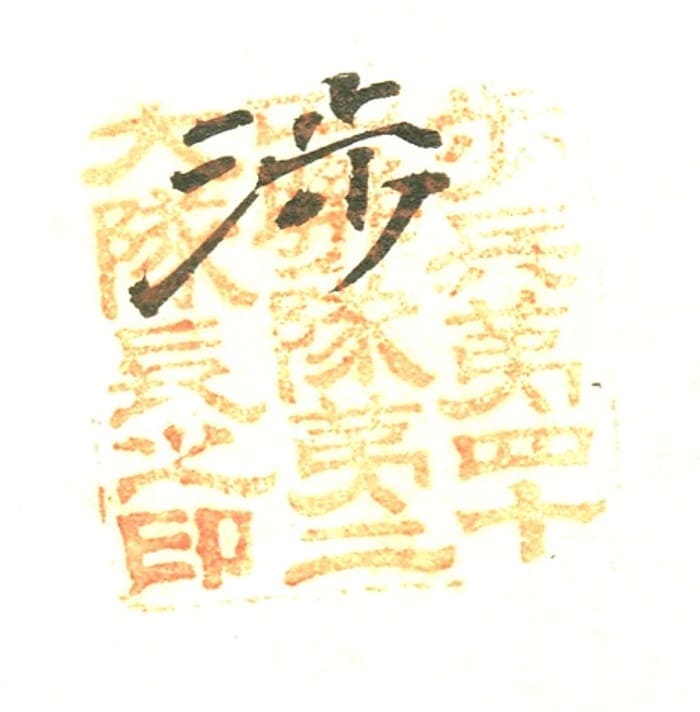 渉
歩兵第四十
聯隊第二
大隊長之印